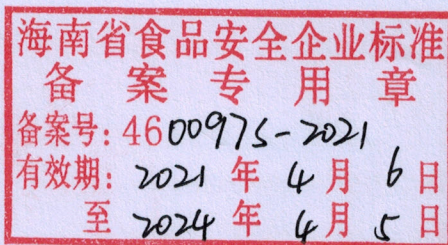 海南省食品安全企业标准
备案专用章
备案号: 4600975-2021
有效期: 2021年4月6日
至2024年4月5日